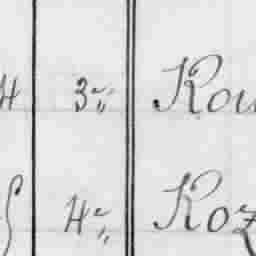 H 3 " Kou
4 " Koz